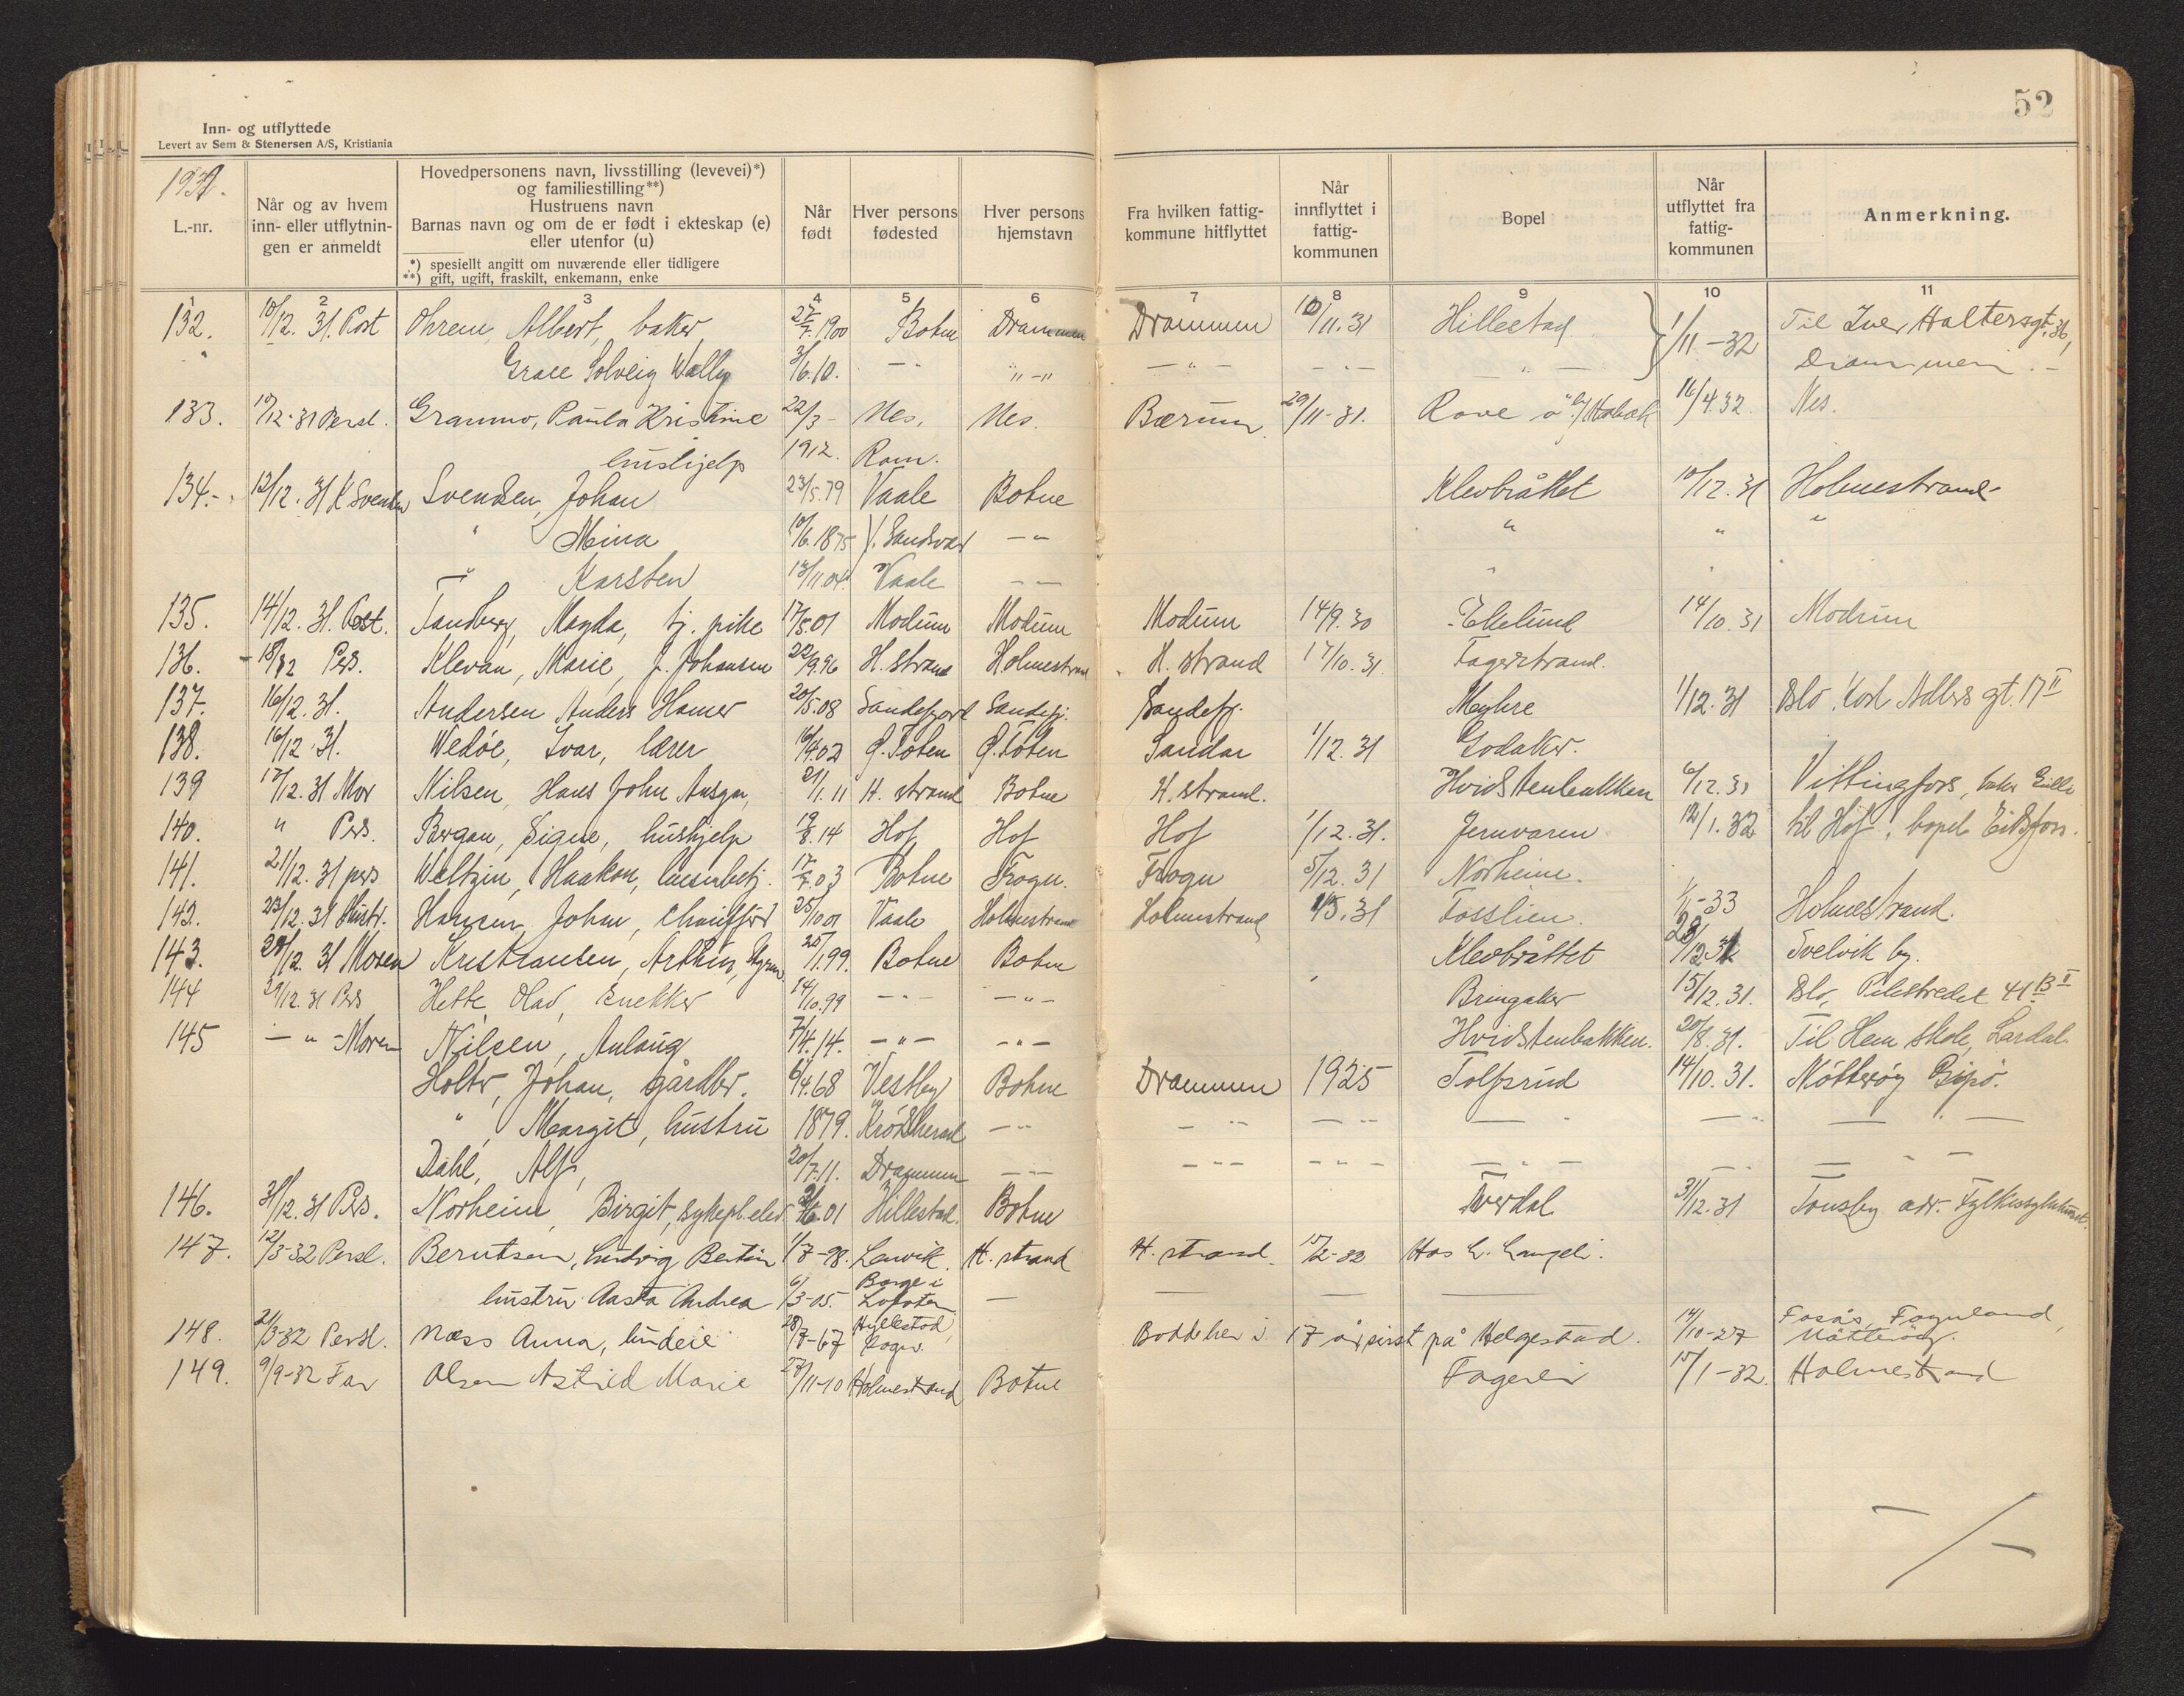 52
Inn- og utflyttede
Levert av Sem & Stenersen A/S, Kristiania
1931.
L.-nr. Når og av hvem inn- eller utflytningen er anmeldt Hovedpersonens navn, livsstilling (levevei)*) og familiestilling**) Hustruens navn Barnas navn og om de er født i ekteskap (e) eller utenfor (u) Når født Hver persons fødested Hver persons hjemstavn Fra hvilken fattigkommune hitflyttet Når innflyttet i fattigkommunen Bopel Når utflyttet fra fattigkommunen Anmerkning.
*) spesiellt angitt om nuværende eller tidligere
**) gift, ugift, fraskilt, enkemann, enke
1 2 3 4 5 6 7 8 9 10 11
132. 10/12. 31. Post Ohrem, Albert, baker 27/7. 1900 Botne Drammen Drammen 10/11. 31 Hillestad 1/11 - 32 Til Iver Haltersgt. 36,
Grace Solveig Wally 3/6. 10. — " " — " — " — — " — — " — Drammen. -
133. 10/12-31 Persl. Grammo, Paula Kristine 22/3- Nes, Nes. Bærum 29/11-31. Rove 16/4.32 Nes.
hushjelp 1912. Rom.
134. 12/12. 31 K Svendsen Svendsen, Johan 23/5.79 Vaale Botne Klevbråttet 10/12. 31 Holmestrand
" Mina 10/6. 1875 Y. Sandsvær — " " " "
— " Karsten 13/11 04. Vaale — — " "
135. 14/12. 31. Post. Tandberg, Magda, tj. pike 17/5.01 Modum Modum Modum 14/9. 30 Ekelund 14/10. 31 Modum
136. 18/12 Pers. Klevan, Marie, f. Johansen 22/9.96 H. strand Holmestrand H. strand 17/10. 31. Fagerstrand.
137. 16/12. 31. Andersen Anders Hamer 20/5.08 Sandefjord Sandefj. Sandefj. Myhre 1/12. 31 Oslo, Kort Adlers gt. 17 II
138. 16/12 31. Wedøe, Ivar, lærer 16/4.02 Ø. Toten Ø. Toten Sandar 1/12. 31 Godaker.
139 17/12. 31 Mor Nilsen, Hans John Ansgar, 21/1. 11 H. strand Botne H. strand. Hvidstenbakken 6/12. 31 Vittingfoss,
140. " Pers. Bergan, Signe, hushjelp 19/8. 14 Hof Hof Hof 1/12. 31. Jernvaren 12/1. 32 til Hof, bopel Eidsfoss.
141. 21/12. 31 pers Weltzin, Haakon, 17/7. 03 Botne Frogn. Frogn 5/12. 31 Norheim.
142. 23/12. 31 Hustr. Hansen, Johan, chauffør 25/10 01 Vaale Holmestrand Holmestrand 1/5. 31 Fosslien. 1/1-33 Holmestrand.
143. 29/12. 31 Moren Kristiansen, Arthur, 25/1.99. Botne Botne Klevbråttet 28/12 31 Svelvik by.
144 29/12. 31 Pers Hette, Olav, snekker 14/10.99 — " — — " — Bringaker 15/12. 31. Oslo, Pilestredet 41 B II
145 — " — Moren Nilsen, Anlaug 7/4. 14. — " — — " — Hvidstenbakken. 20/8. 31. Til Hem skole, Lardal.
Holtr, Johan, gårdbr. 6/4.68 Vestby Botne Drammen 1925 Tolfsrud 14/10. 31. Nøtterøy
" , Margit, hustru 1879. Krødsherad — " — " " — " — — " — " — " —
Dahl, Alf, 20/7.11. Drammen — " — — " — — " — — " — — " — — " —
146. 31/12. 31 Pers. Norheim, Birgit, sykepl. elev 01 Hillestad. Botne Tverdal 31/12. 31 Tønsby adr. Fylkessykehuset.
147. 12/3-32 Persl. Berntsen, Ludvig Bertin 1/7-98. Larvik. H. strand H. strand. 15/2-32 Hos L. Langeli.
hustru Aasta Andrea 6/3-05. Borge i Lofoten — — — —
148. 21/3-32 Persl. Næss Anna, 28/7-67 Hyllestad, Sogn. Bodd her i 17 år sist på Helgestad. 14/10-27 Fosås, Føynland, Nøtterøy.
149. 9/9-32 Far Olsen Astrid Marie 27/11-10 Holmestrand Botne Fagerli 15/1-32. Holmestrand